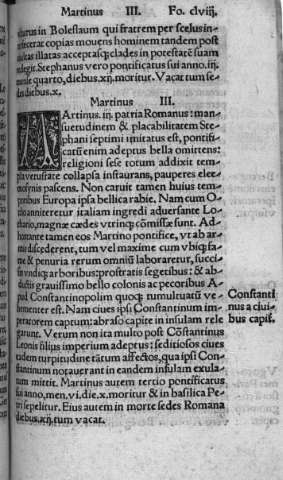 Martinus III. Fo. clviij.
cturus in Boleslaum qui fratrem per scelus in-
terfecerat copias mouens hominem tandem post
multas illatas acceptasq; clades in potestatē suam
redegit. Stephanus vero pontificatus sui anno.iij.
mense quarto, diebus.xij. moritur. Vacat tum se-
des diebus.x.
Martinus III.
MArtinus.iij. patria Romanus: man-
suetudinem & placabilitatem Ste-
phani septimi imitatus est, pontifi-
catū enim adeptus bella omittens:
religioni sese totum addixit tem
pla vetustate collapsa instaurans, pauperes elee-
mosynis pascens. Non caruit tamen huius tem-
poribus Europa ipsa bellica rabie. Nam cum O-
tho anniteretur italiam ingredi aduersante Lo-
thario, magnæ cædes vtrinq; cōmissæ sunt. Ad-
hortante tamen eos Martino pontifice, vt ab ar-
mis discederent, tum vel maxime cum vbiq; fa-
me & penuria rerum omniū laboraretur, succi-
sis vndiq; arboribus: prostratis segetibus: & ab-
ductis grauissimo bello colonis ac pecoribus A-
pud Constantinopolim quoq; tumultuatū ve-
hementer est. Nam ciues ipsi Constantinum im-
peratorem captum: abraso capite in insulam rele
garunt. Verum non ita multo post Cōstantinus
Leonis filius imperium adeptus: seditiosos ciues
eadem turpitudine tātum affectos, qua ipsi Con-
stantinum notauerant in eandem insulam exula-
tum mittit. Martinus autem tertio pontificatus
sui anno, men.vi.die.x. moritur & in basilica Pe-
tri sepelitur. Eius autem in morte sedes Romana
diebus.xij. tum vacat.
Constanti
nus a ciui-
bus capit᷒.